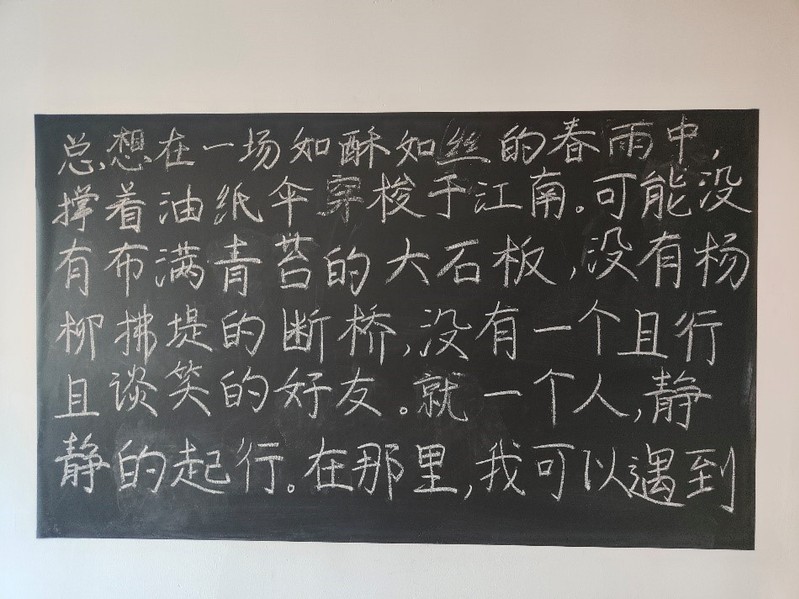 总想在一场如酥如丝的春雨中,
撑着油纸伞穿梭于江南。可能没
有布满青苔的大石板,没有杨
柳拂堤的断桥,没有一个且行
且谈笑的好友。就一个人,静
静的起行。在那里,我可以遇到